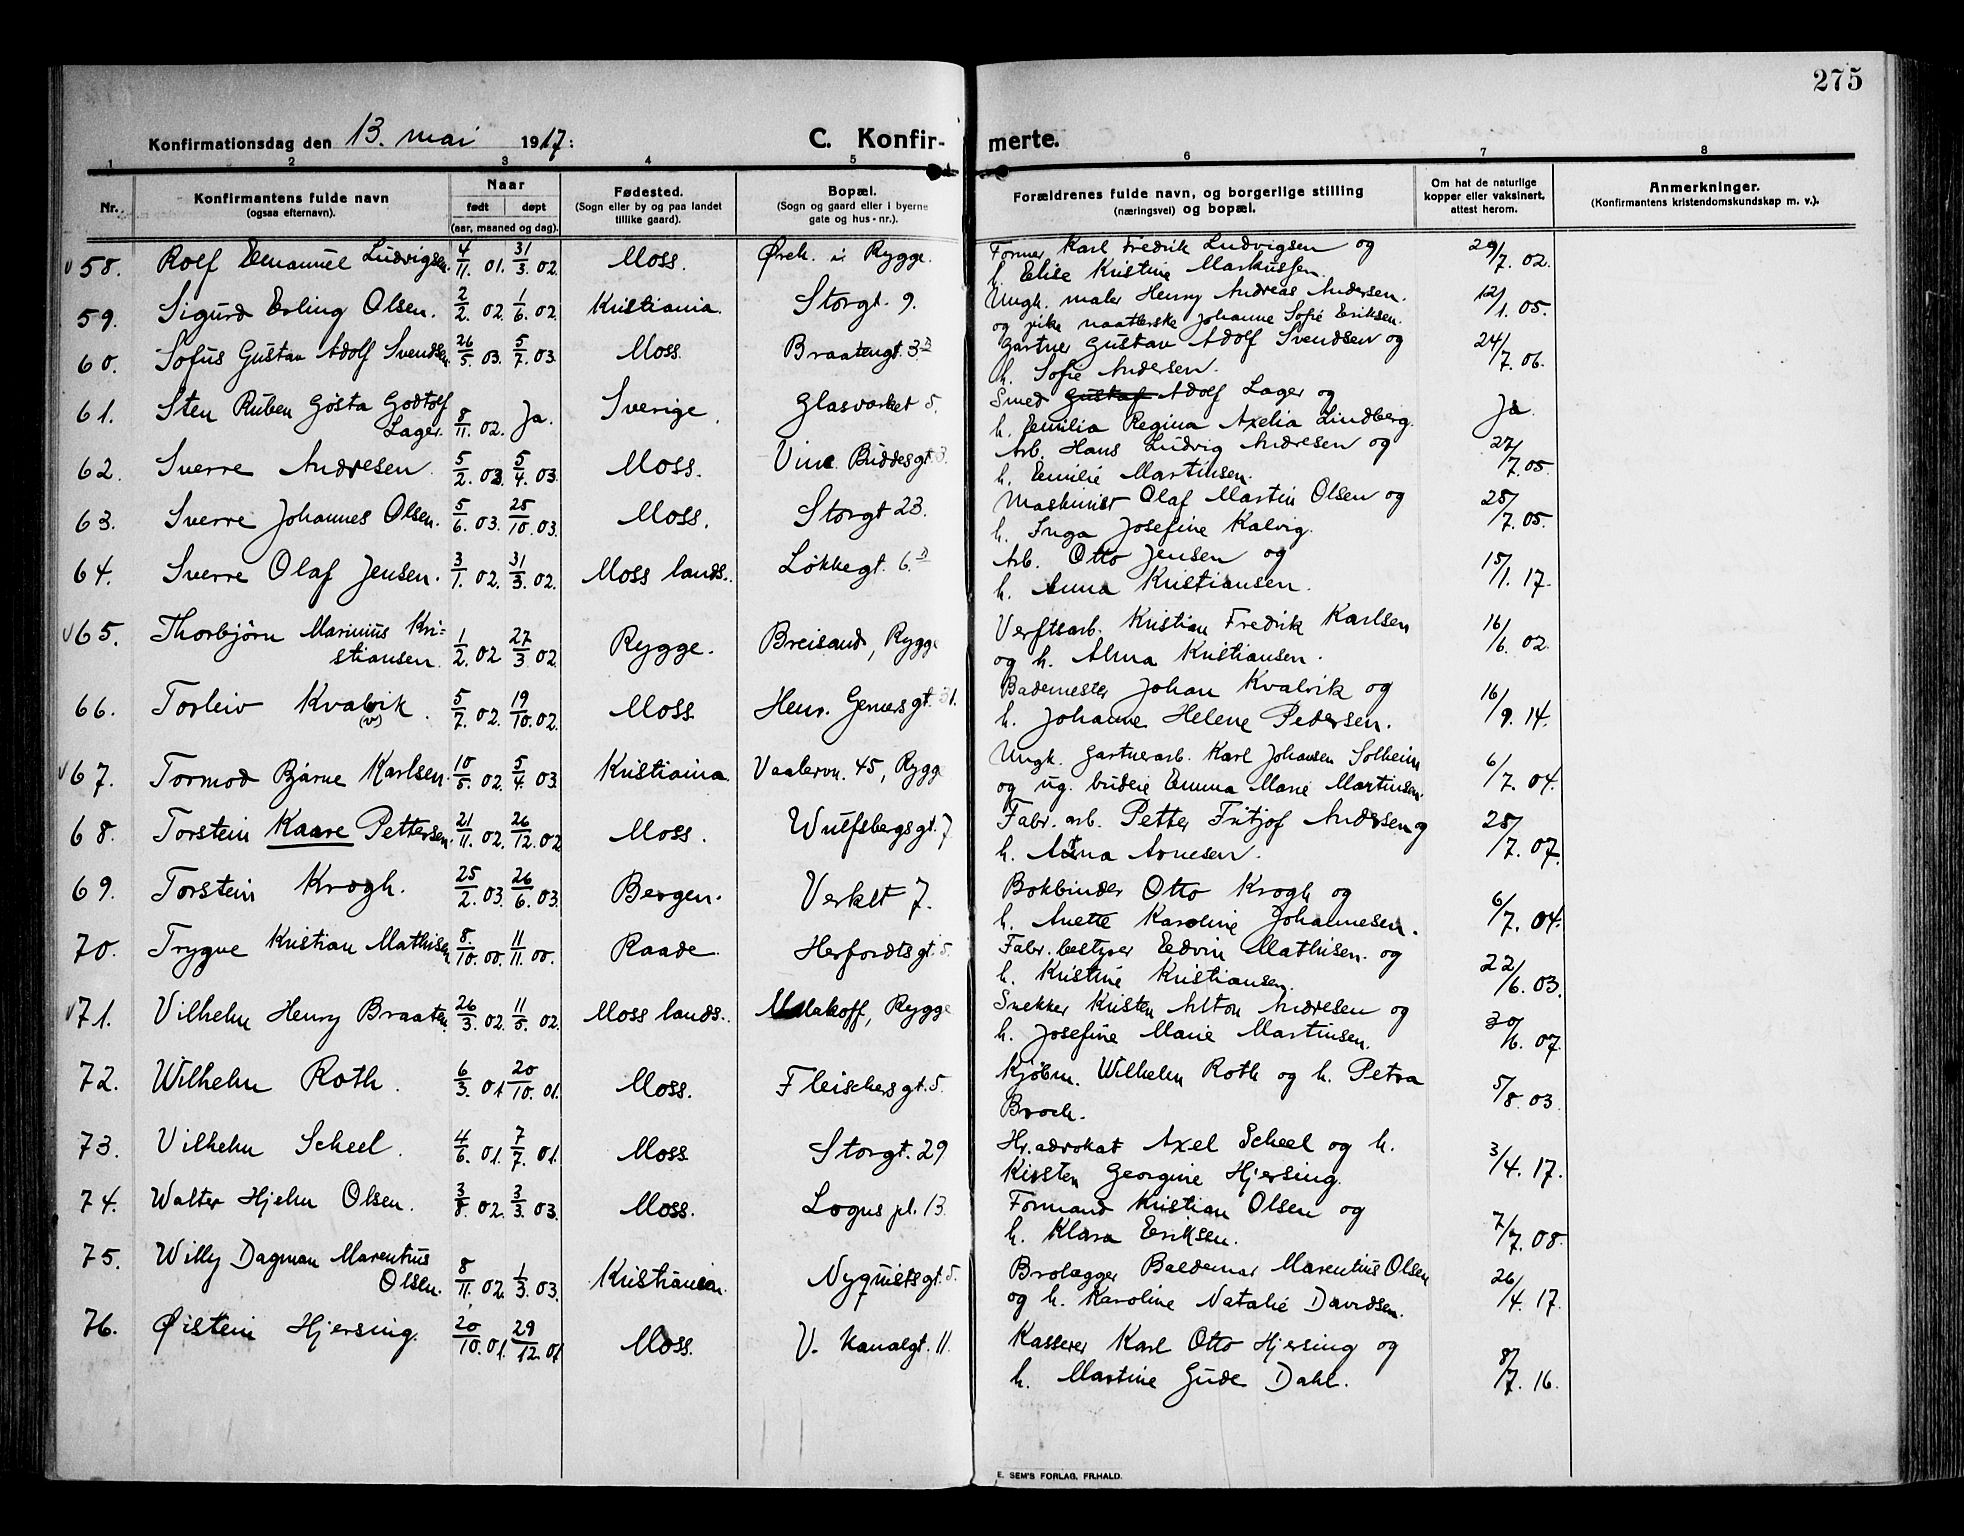 275
Konfirmationsdag den 13. mai 1917: C. Konfir-merte.
1 2 3 4 5 6 7 8
Nr. Konfirmantens fulde navn (ogsaa efternavn). Naar født døpt (aar, maaned og dag). Fødested. (Sogn eller by og paa landet tillike gaard). Bopæl. (Sogn og gaard eller i byerne gate og hus-nr.). Forældrenes fulde navn, og borgerlige stilling (næringsvei) og bopæl. Om hat de naturlige kopper eller vaksinert, attest herom. Anmerkninger. (Konfirmantens kristendomskundskap m. v.).
v 58. Rolf Emanuel Ludvigsen. 4/11. 01. 31/3. 02. Moss. Ørek. i Rygge. Former Karl Fredrik Ludvigsen og 29/7. 02.
h. Elise Kristine Markussen.
59. Sigurd Erling Olsen. 2/2. 02. 1/6. 02. Kristiania. Storgt. 9. Ungk. maler Henry Andreas Andersen. 12/1. 05.
og pike naatlerske Johanne Sofie Eriksen.
60. Sofus Gustav Adolf Svendsen 26/5. 03. 5/7. 03. Moss. Braatengt. 3 B Gartner Gustav Adolf Svendsen og 24/7. 06.
h. Sofie Andersen.
61. Sten Ruben Gösta Godtolf Smed Gustaf Adolf Lager og
Lager. 8/11. 02. Ja. Sverige. Glasverket 5. h. Emilia Regina Axelia Lindberg. Ja.
62. Sverre Andresen. 5/2. 03. 5/4. 03. Moss. Vinc. Buddesgt. 3. Arb. Hans Ludvig Andresen og 27/7. 05.
h. Emilie Martinsen.
63. Sverre Johannes Olsen. 5/6. 03. 25/10. 03. Moss. Storgt 23. Maskinist Olaf Martin Olsen og 25/7. 05.
h. Inga Josefine Kalvig.
64. Sverre Olaf Jensen. 3/1. 02. 31/3. 02. Moss lands. Løkkegt. 6 B Arb. Otto Jensen og 15/1. 17.
h. Anna Kristiansen.
v 65. Thorbjörn Marinius Kri= Verftsarb. Kristian Fredrik Karlsen
stiansen. 1/2. 02 27/3. 02. Rygge. Breisand, Rygge og h. Alma Kristiansen. 16/6. 02.
66. Torleiv Kvalvik. (v) 5/7. 02. 19/10. 02. Moss. Henr. Gernersgt. 31. Bademester Johan Kvalvik og 16/9. 14.
h. Johanne Helene Pedersen.
v 67. Tormod Bjarne Karlsen. 10/5. 02. 5/4. 03. Kristiania Vaalervn. 45, Rygge Ungk. gartnerarb. Karl Johansen Solheim 6/7. 04.
og ug. budeie Emma Marie Martinsen.
68. Torstein Kaare Pettersen. 21/11. 02. 26/12. 02 Moss. Wulfsbergsgt. 7 Fabr. arb. Petter Fritjof Andersen og 25/7. 07.
h. Anna Arnesen.
69. Torstein Krogh. 25/2. 03. 26/6. 03. Bergen. Verket 7. Bokbinder Otto Krogh og 6/7. 04.
h. Anette Karoline Johannesen.
70. Trygve Kristian Mathisen 8./10. 00. 11/11. 00. Raade. Herfordtsgt. 5. Fabr. bestyrer Edvin Mathisen og 22/6. 03.
h. Kristine Kristiansen.
v 71. Vilhelm Henry Braaten. 26/3. 02. 11/5. 02. Moss lands. Malakoff, Rygge Snekker Kristen Alton Andresen og 30/6. 07.
h. Josefine Marie Martinsen.
72. Wilhelm Roth. 6/3. 01 20/10. 01. Moss. Fleischersgt. 5. Kjöbm. Wilhelm Roth og h. Petra 5/8. 03.
Broch.
73. Vilhelm Scheel. 4/6. 01. 7/7. 01. Moss Storgt. 29 Hr. advokat Axel Scheel og h. 3/4. 17.
Kirsten Georgine Hjersing.
74. Walter Hjelm Olsen. 3/8. 02. 3/3. 03. Moss. Logns pl. 13. Formand Kristian Olsen og 7/7. 08.
h. Klara Eriksen.
75. Willy Dagman Marentius Brolægger Baldemar Marentius Olsen
Olsen. 8/11. 02. 1/3. 03. Kristiania. Nyquistsgt. 5. og h. Karoline Natalie Davidsen. 26/4. 17.
76. Øistein Hjersing. 20/10. 01. 29/12. 01 Moss. V. Kanalgt. 11. Kasserer Karl Otto Hjersing og 8/7. 16.
h. Martine Gude Dahl.
E. SEM'S FORLAG, FR.HALD.